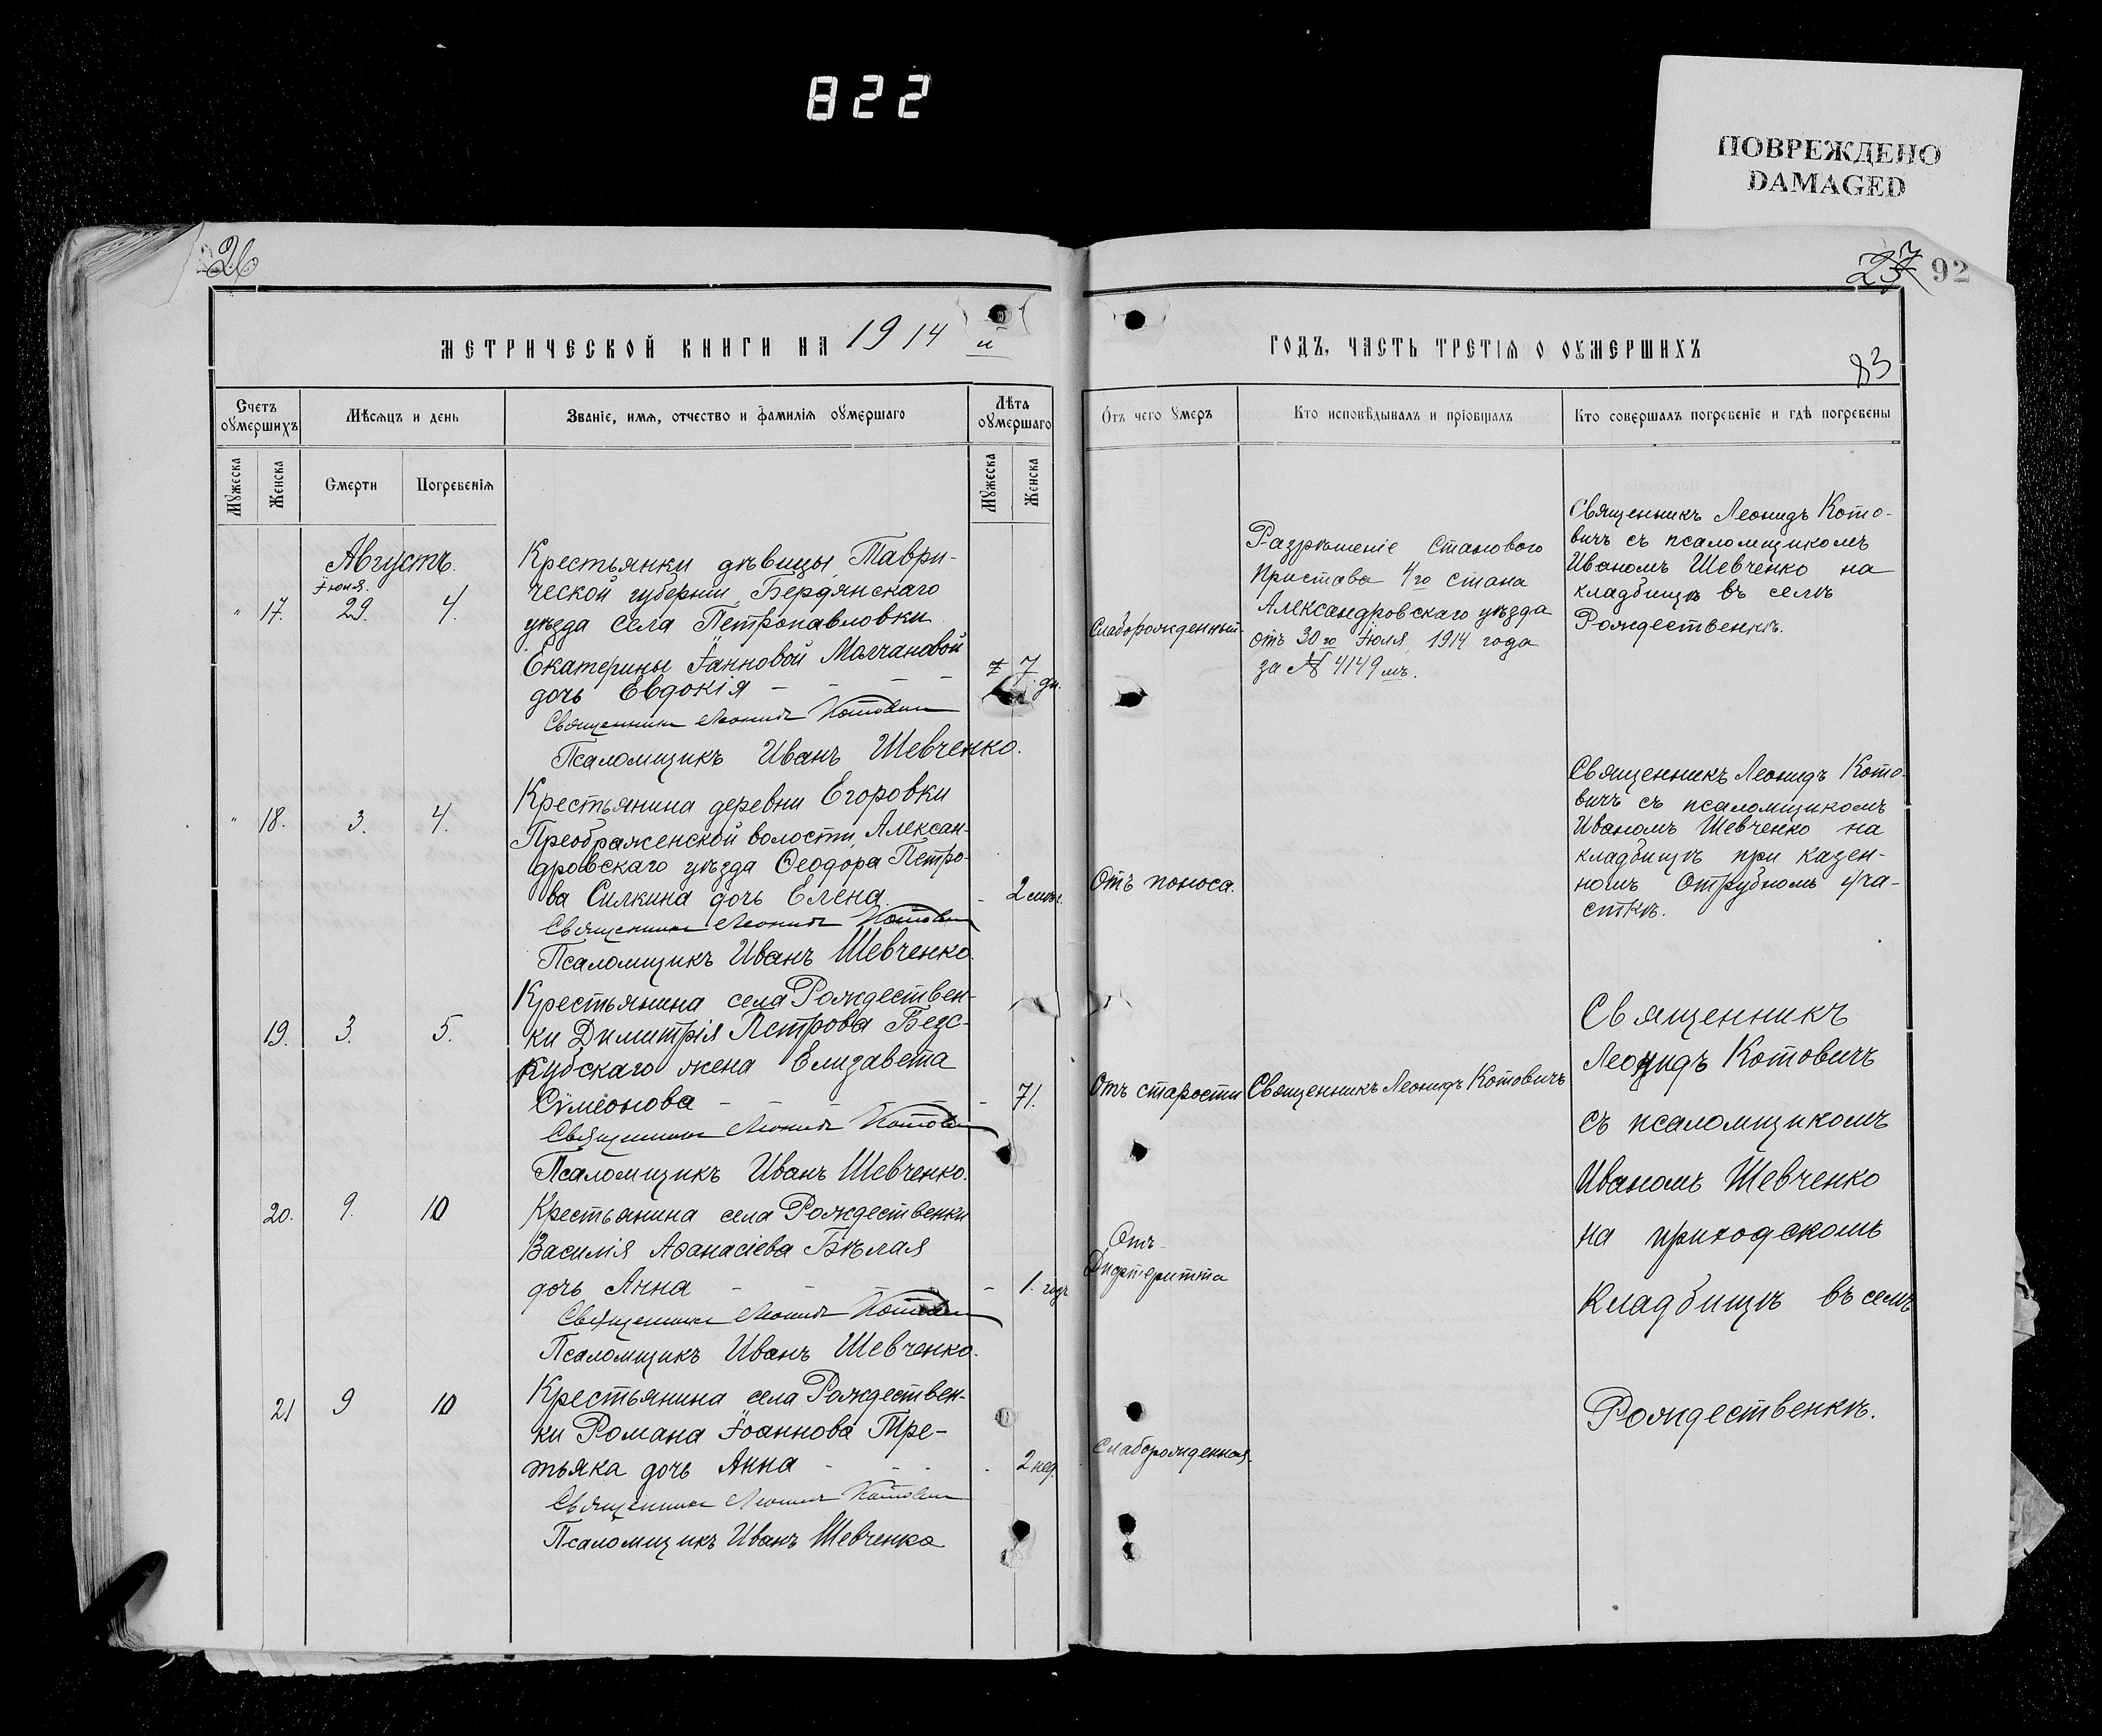 822
ПОВРЕЖДЕНО
DAMAGED
26
27
92
МЕТРИЧЕСКОЙ КНИГИ НА 1914 й
ГОДЪ, ЧАСТЬ ТРЕТІѦ О ОУМЕРШИХЪ
83
Счетъ оумершихъ
Мѣсѧцъ и день
Званіе, имѧ, отчество и фамиліѧ оумершаго
Лѣта оумершаго
Отъ чего умеръ
Кто исповѣдывалъ и пріобщалъ
Кто совершалъ погребеніе и гдѣ погребены
Мужеска
Женска
Смерти
Погребеніѧ
Мужеска
Женска
Августъ.
Іюля.
" 17. 29. 4.
Крестьянки дѣвицы, Таври-
ческой губерніи Бердянскаго
уѣзда села Петропавловки
Екатерины Іанновой Молчановой
дочь Евдокія - - - -
7 дн.
Священникъ Леонидъ Котовичъ
Псаломщикъ Иванъ Шевченко.
Слаборожденный
Разрѣшеніе Станового
Пристава 4го стана
Александровскаго уѣзда
отъ 30го Іюля 1914 года
за № 4149 мъ.
Священникъ Леонидъ Кото-
вичъ съ псаломщикомъ
Иваномъ Шевченко на
кладбищѣ въ селѣ
Рождественкѣ.
" 18. 3. 4.
Крестьянина деревни Егоровки
Преображенской волости, Алексан-
дровскаго уѣзда Ѳеодора Петро-
ва Силкина дочь Елена.
- 2 мѣс.
Священникъ Леонидъ Котовичъ
Псаломщикъ Иванъ Шевченко.
Отъ поноса.
Священникъ Леонидъ Кото-
вичъ съ псаломщикомъ
Иваномъ Шевченко на
кладбищѣ при казен-
номъ Отрубномъ уча-
сткѣ.
19. 3. 5.
Крестьянина села Рождествен-
ки Димитрія Петрова Безс-
кубскаго жена Елизавета
Сѵмеонова - - - - -
71.
Священникъ Леонидъ Котовичъ
Псаломщикъ Иванъ Шевченко.
Отъ старости
Священникъ Леонидъ Котовичъ
Священникъ
Леонидъ Котовичъ
съ псаломщикомъ
Иваномъ Шевченко
на приходскомъ
кладбищѣ въ селѣ
Рождественкѣ.
20. 9. 10
Крестьянина села Рождественки
Василія Аѳанасіева Бѣлая
дочь Анна - - - - -
1. годъ
Священникъ Леонидъ Котовичъ
Псаломщикъ Иванъ Шевченко.
Отъ
Дифтеритта
21 9 10
Крестьянина села Рождествен-
ки Романа Іоаннова Тре-
тьяка дочь Анна - - - -
2 нед.
Священникъ Леонидъ Котовичъ
Псаломщикъ Иванъ Шевченко
Слаборожденная.